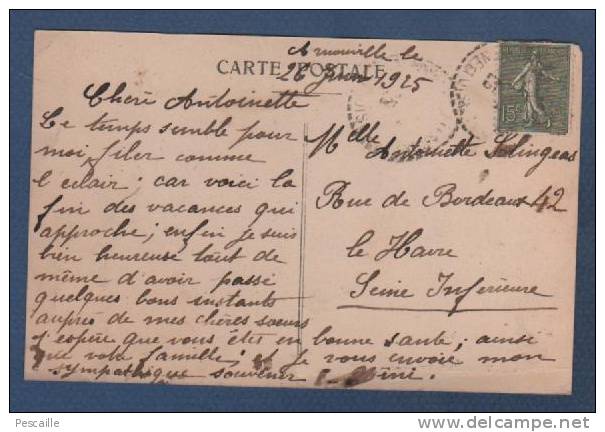 Arnouville le
CARTE POSTALE
26 Juin 1925
Chère Antoinette
Le temps semble pour
moi filer comme
l'eclair; car voici la
fin des vacances qui
approche; enfin je suis
bien heureuse tout de
même d'avoir passé
quelques bons instants
auprès de mes chères soeurs
j'espère que vous êtes en bonne sante; ainsi
que votre famille; et je vous envoie mon
sympathique souvenir
Mlle Antoinette
Rue de Bordeaux 42
le Havre
Seine Inférieure
15c
Pescaille
www.delcampe.net